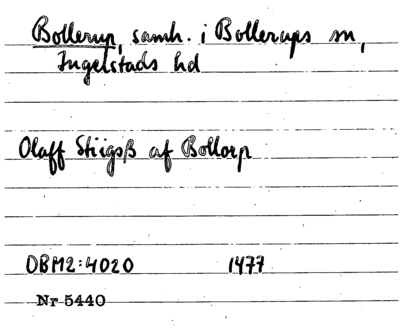 Bollerup, samh. i Bollerups sn,
Ingelstads hd
Olaff Stiigsß af Bollorp
DBM2:4020 1477
Nr 5440